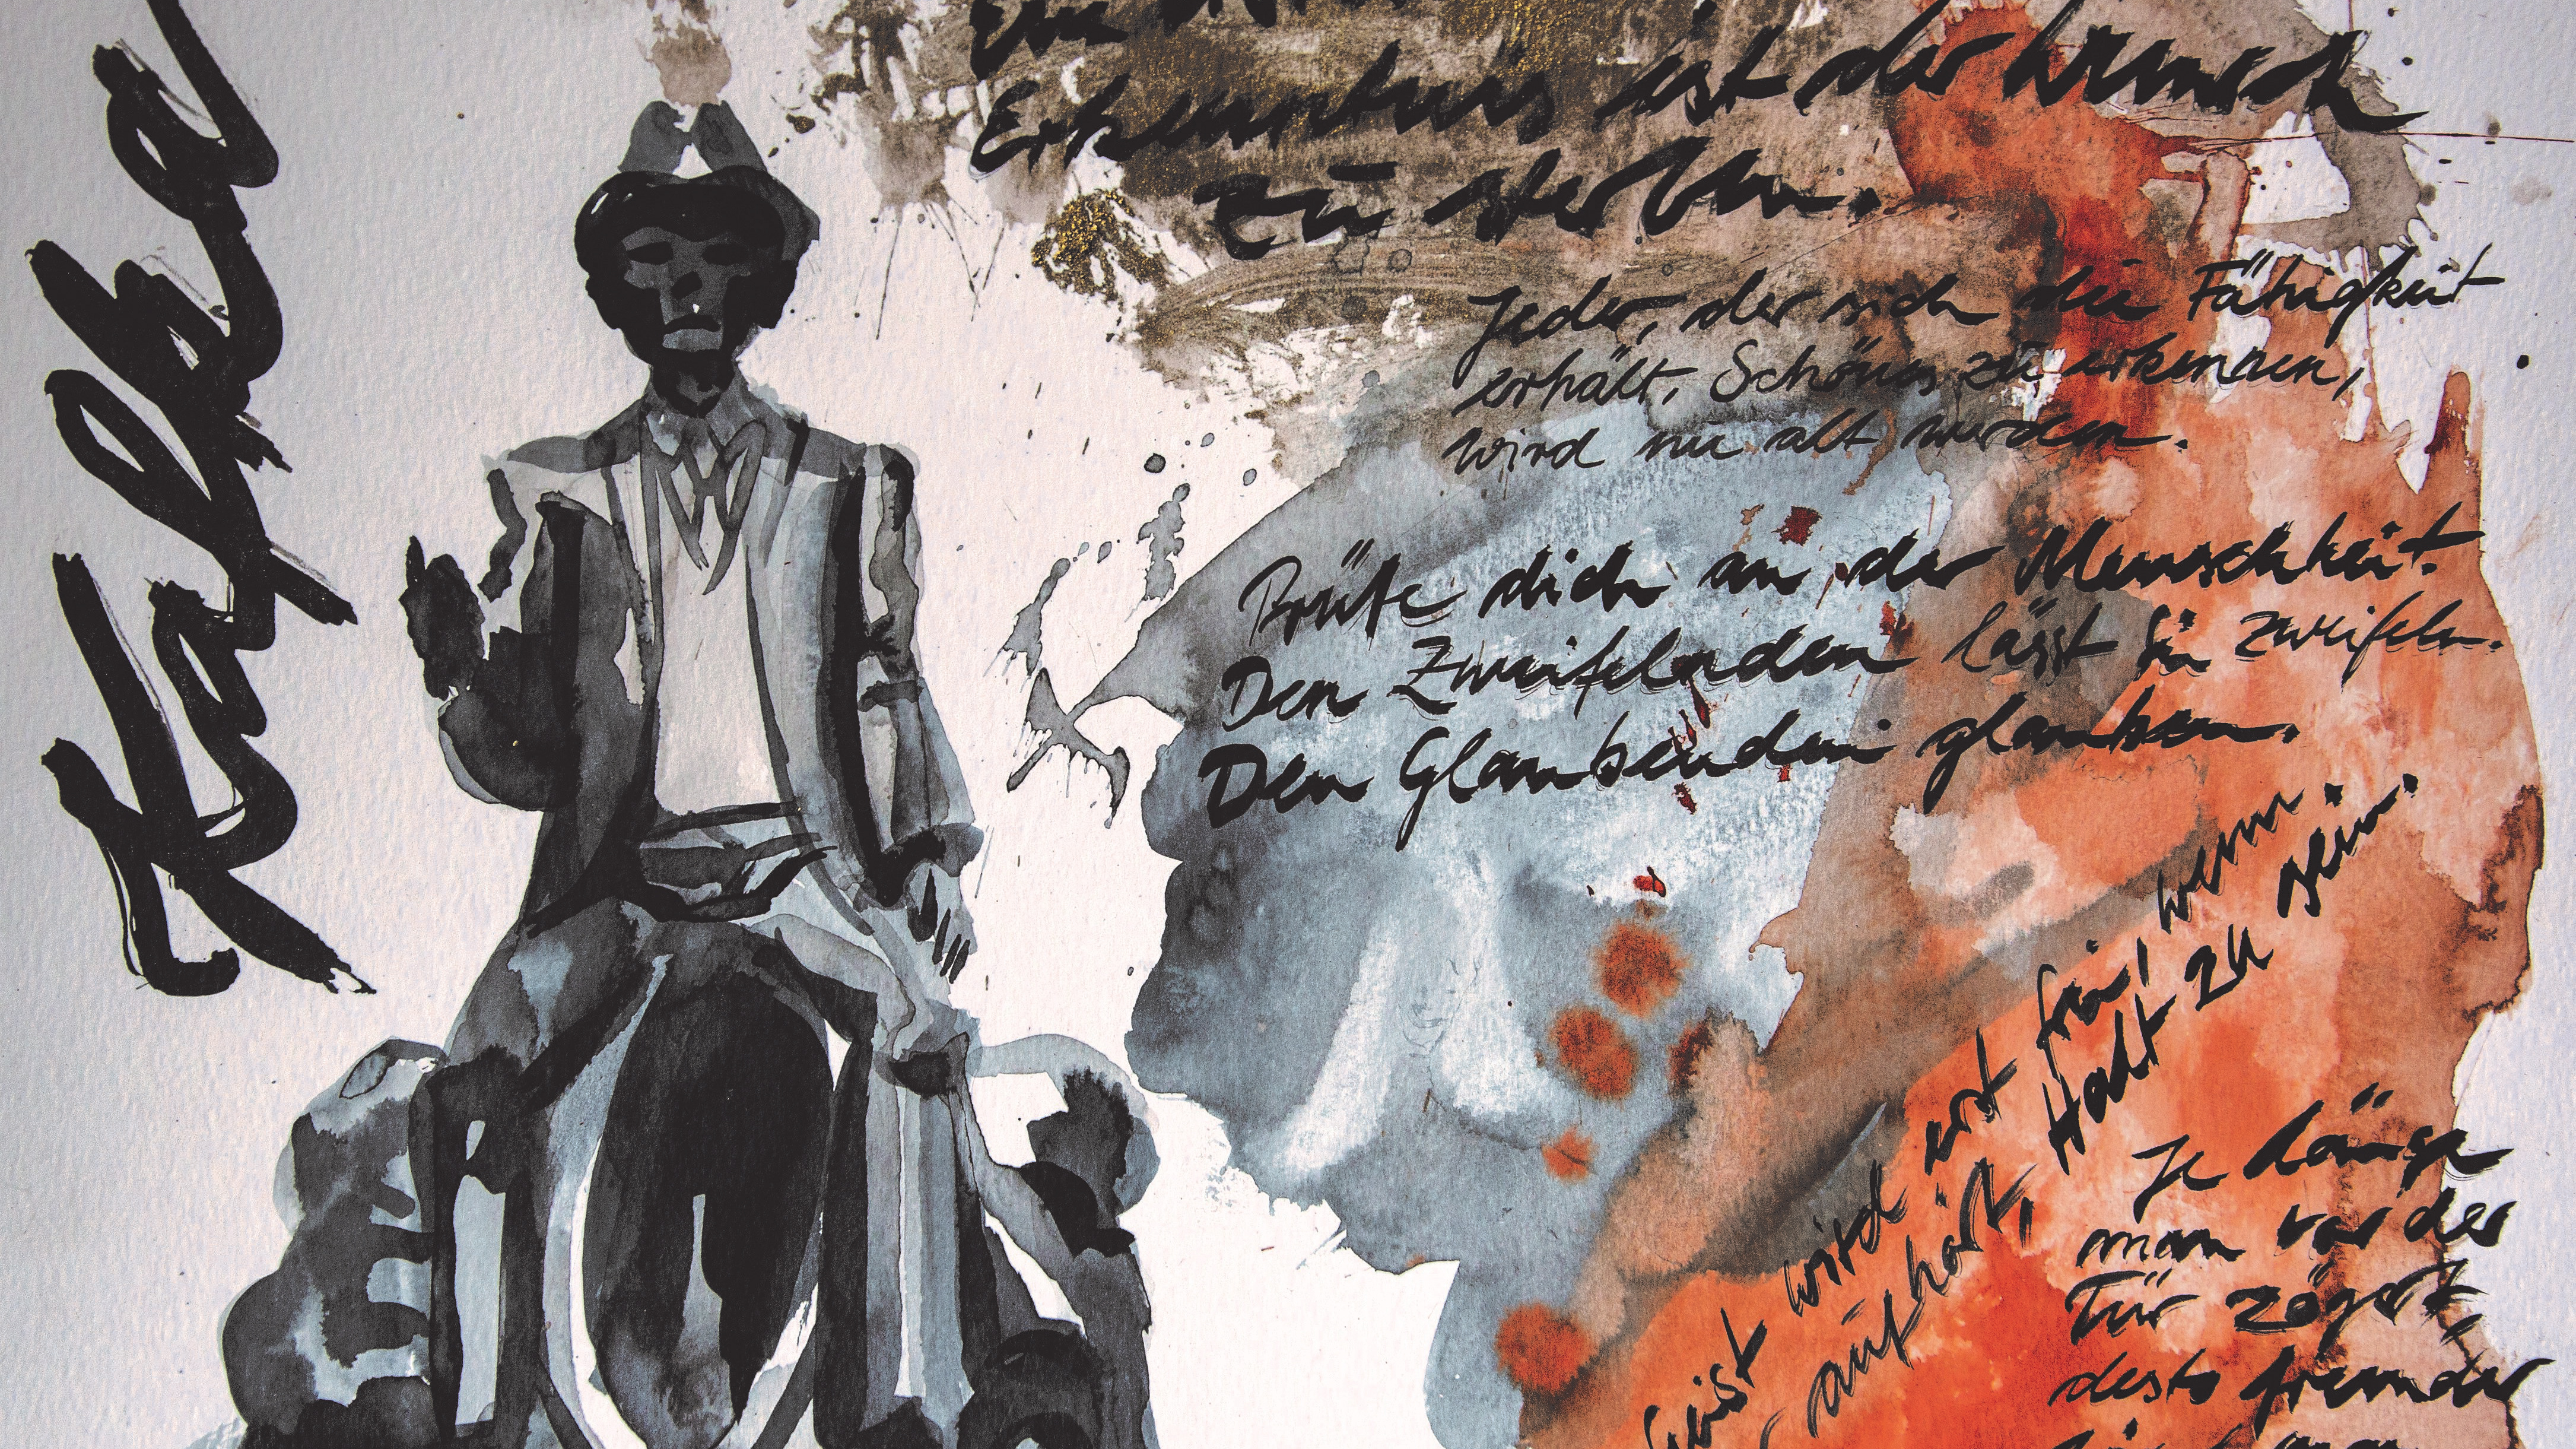 Kafka
Erkenntnis ist der Wunsch
zu sterben.
Jeder, der sich die Fähigkeit
erhält, Schönes zu erkennen,
wird nie alt werden.
Prüfe dich an der Menschheit.
Den Zweifelnden lässt sie zweifeln.
Den Glaubenden glauben.
Geist wird erst frei, wenn
aufhört, Halt zu sein.
Je länger
man vor der
Tür zögert
desto fremder